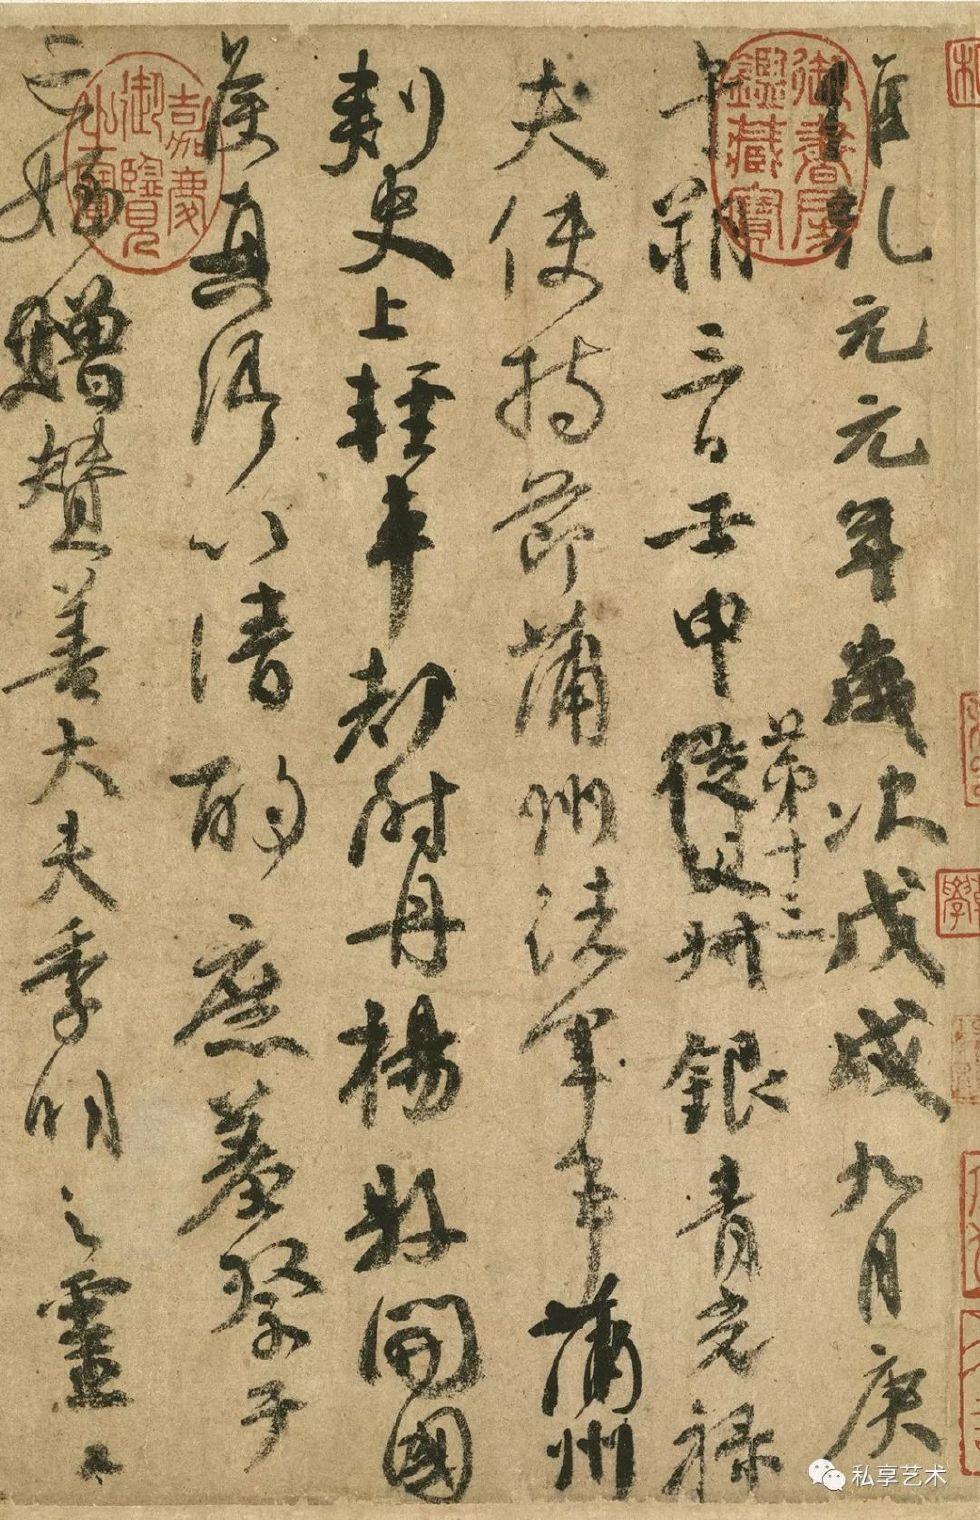 維乾元元年歲次戊戌九月庚
午朔三日壬申第十三從父銀青光祿
夫使持節蒲州諸軍事蒲州
刺史上輕車都尉丹楊縣開國
侯真卿以清酌庶羞祭于
亡姪贈贊善大夫季明之靈曰
御書房
鑑藏寶
嘉慶
御覽
之寶
私享艺术